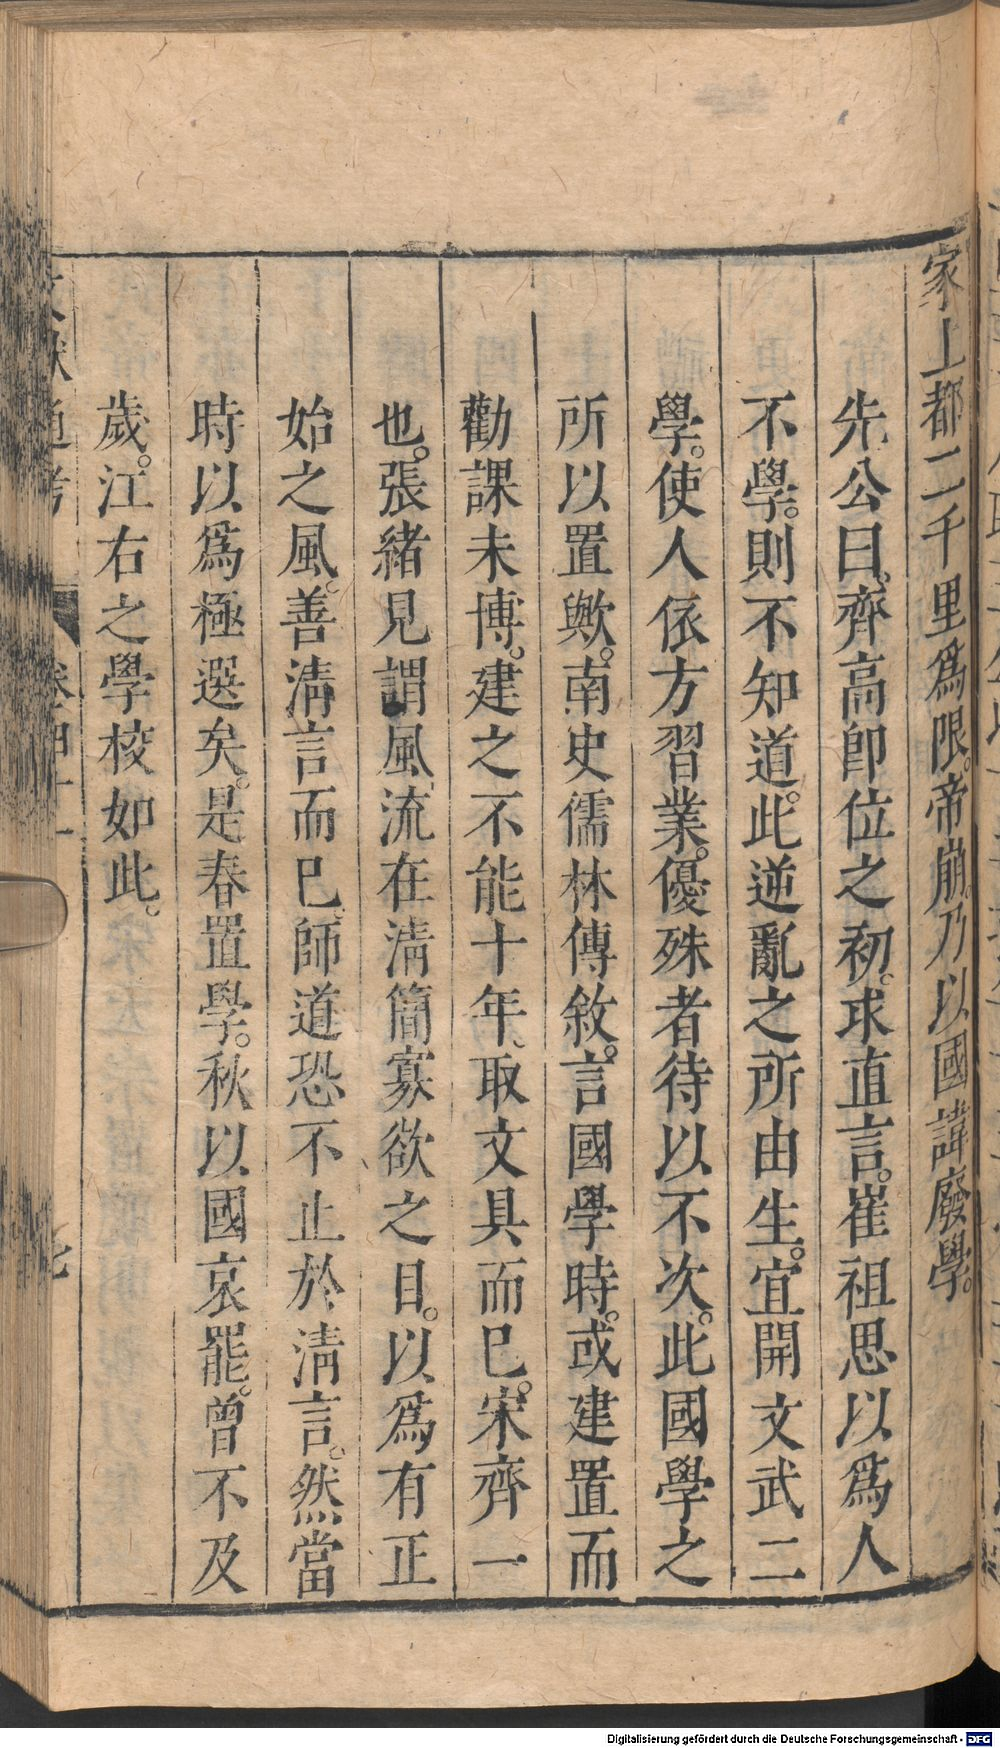 家上都二千里爲限。帝崩。乃以國諱廢學。
先公曰。齊高卽位之初。求直言。崔祖思以爲人
不學。則不知道。此逆亂之所由生。宜開文武二
學。使人依方習業。優殊者待以不次。此國學之
所以置歟。南史儒林傳敘。言國學時。或建置而
勸課未博。建之不能十年。取文具而已。宋齊一
也。張緒見謂風流在淸簡寡欲之目。以爲有正
始之風。善淸言而已。師道恐不止於淸言。然當
時以爲極選矣。是春置學。秋以國哀罷。曾不及
歲。江右之學校如此。
文獻通考 卷四十一
Digitalisierung gefördert durch die Deutsche Forschungsgemeinschaft - DFG